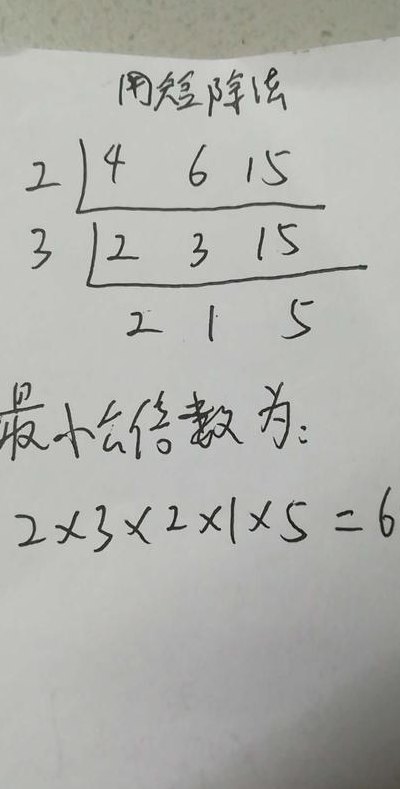 用短除法
2 4 6 15
3 2 3 15
2 1 5
最小公倍数为:
2×3×2×1×5=6